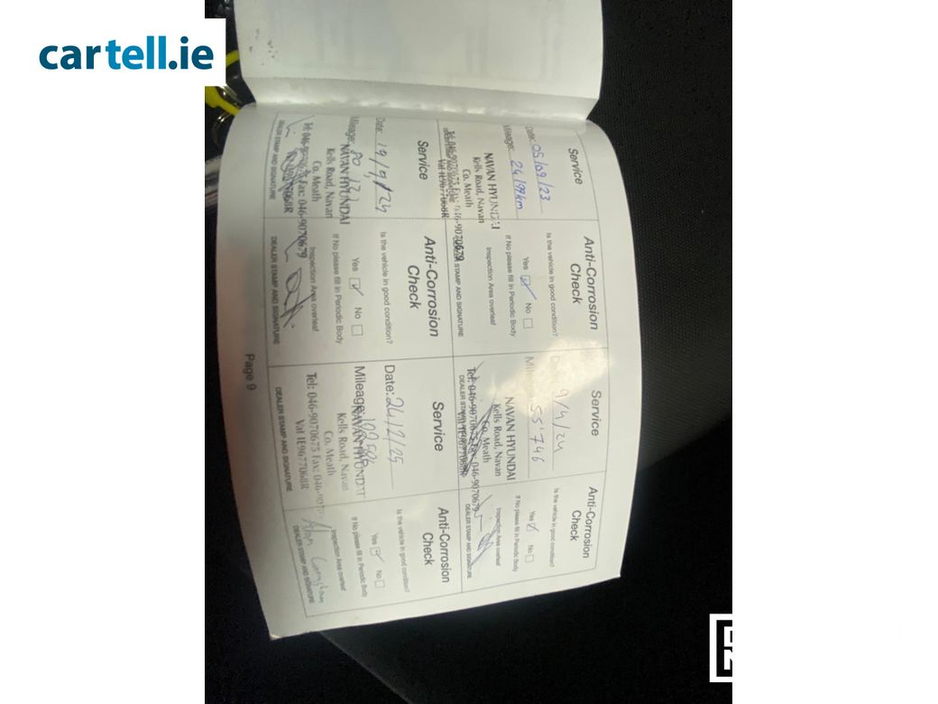 cartell.ie
Service
Date: 05/09/23
Mileage:
NAVAN HYUNDAI
Kells Road, Navan
Co. Meath
Anti-Corrosion
Check
Is the vehicle in good condition?
Yes ☑ No ☐
If No please fill in Periodic Body
Inspection Area overleaf
DEALER STAMP AND SIGNATURE
Service
9/4/24
55746
NAVAN HYUNDAI
Kells Road, Navan
Co. Meath
Anti-Corrosion
Check
Is the vehicle in good condition?
Yes ☑ No ☐
If No please fill in Periodic Body
Inspection Area overleaf
DEALER STAMP AND SIGNATURE
Service
Date: 19/9/24
Mileage:
NAVAN HYUNDAI
Kells Road, Navan
Co. Meath
Fax: 046-9070679
DEALER STAMP AND SIGNATURE
Anti-Corrosion
Check
Is the vehicle in good condition?
Yes ☑ No ☐
If No please fill in Periodic Body
Inspection Area overleaf
DEALER STAMP AND SIGNATURE
Service
Date: 24/2/25
Mileage:
NAVAN HYUNDAI
Kells Road, Navan
Co. Meath
Tel: 046-9070675 Fax: 046-907
Vat IE9677068R
DEALER STAMP AND SIGNATURE
Anti-Corrosion
Check
Is the vehicle in good condition?
Yes ☑ No ☐
If No please fill in Periodic Body
Inspection Area overleaf
DEALER STAMP AND SIGNATURE
Page 9